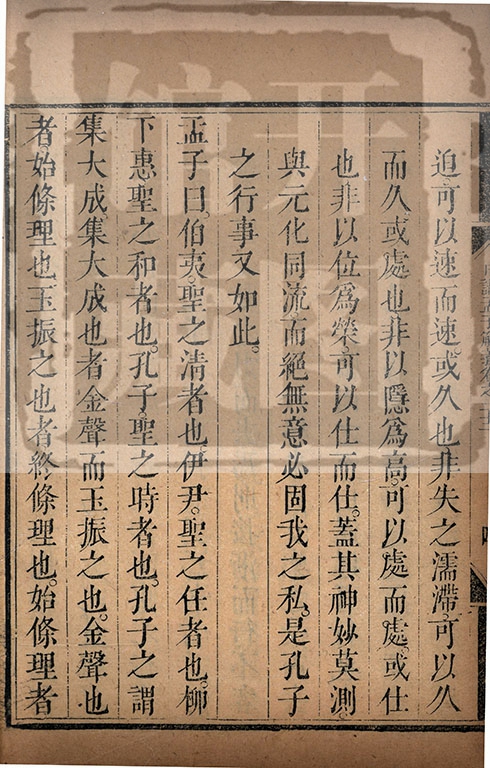 迫可以速而速或久也非失之濡滯可以久
而久或處也非以隱爲高可以處而處或仕
也非以位爲榮可以仕而仕蓋其神妙莫測
與元化同流而絕無意必固我之私是孔子
之行事又如此
孟子曰伯夷聖之清者也伊尹聖之任者也柳
下惠聖之和者也孔子聖之時者也孔子之謂
集大成集大成也者金聲而玉振之也金聲也
者始條理也玉振之也者終條理也始條理者